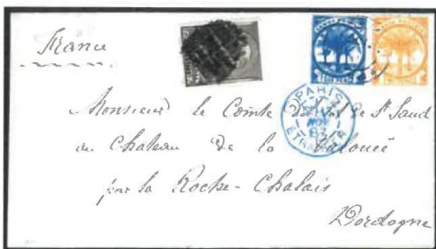 France
PARIS
Monsieur le Comte de St Saud
au Chateau de la
ETRANGER
par la Roche-Chalais
Dordogne